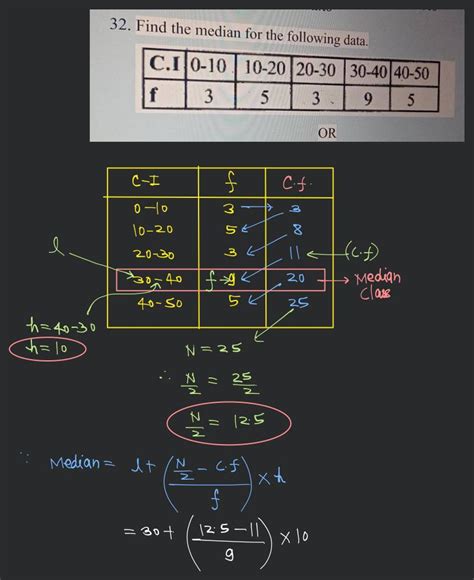 32. Find the median for the following data.
C.I 0-10 10-20 20-30 30-40 40-50
f 3 5 3 9 5
OR
C-I f C.f.
0-10 3 3
10-20 5 8
l 20-30 3 11 (C.f)
30-40 f→9 20 → Median Class
40-50 5 25
h=40-30
h=10
N=25
∴ N/2 = 25/2
N/2 = 12.5
∵ Median = l+ (N/2 - C.f / f) × h
= 30+ (12.5-11 / 9) × 10